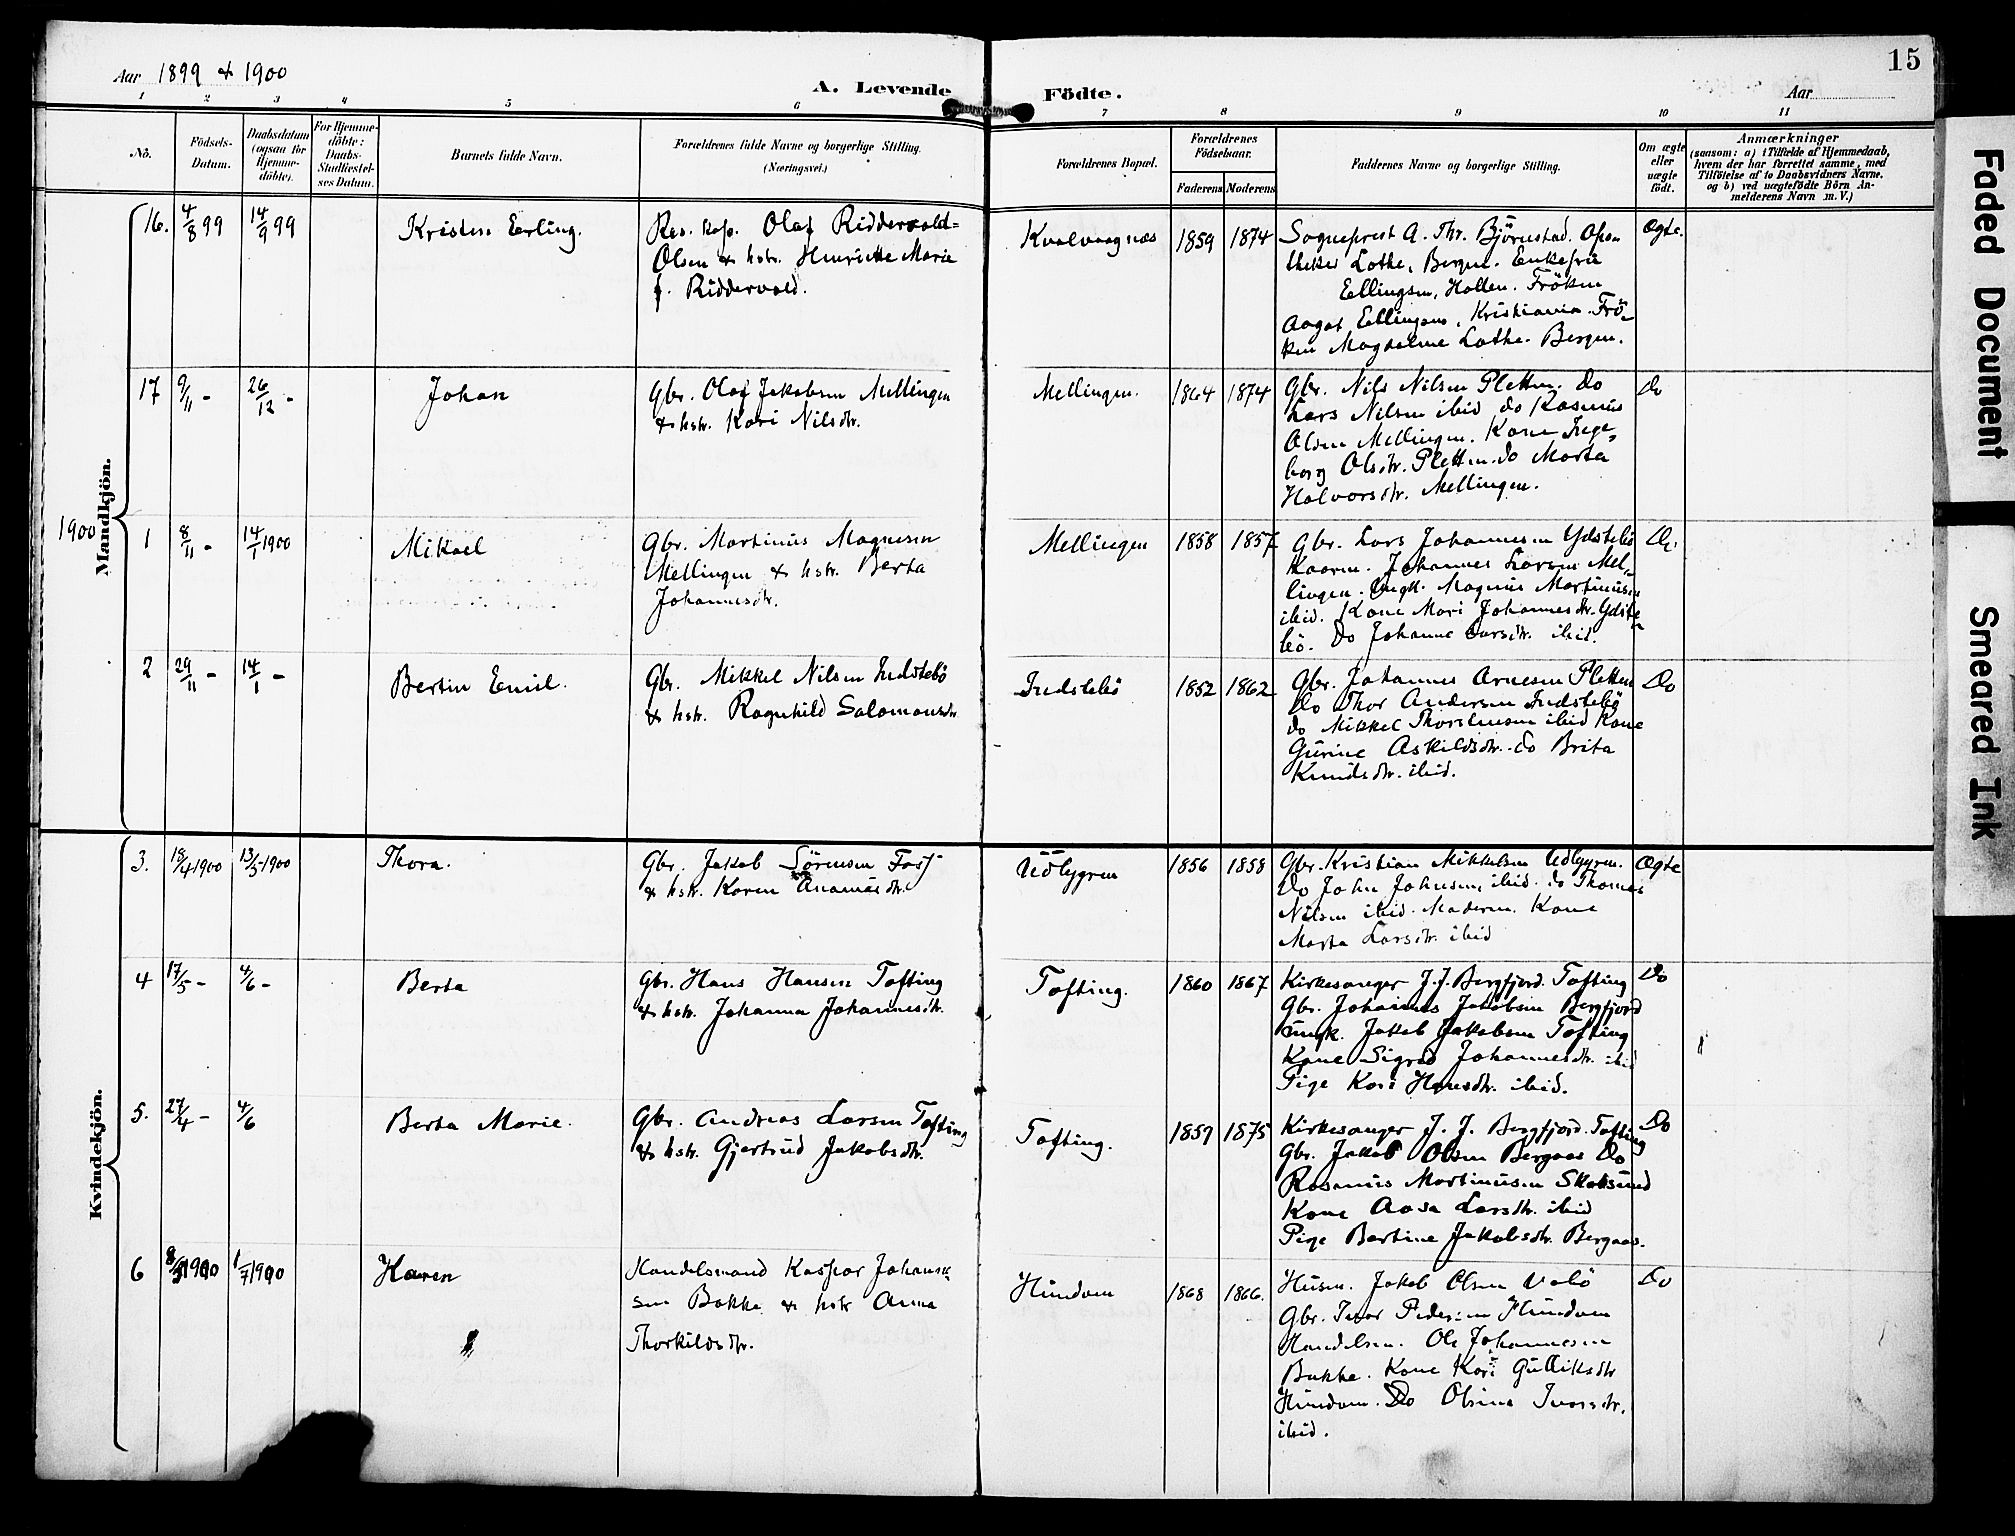 15
Aar 1899 & 1900
A. Levende Födte.
Aar
1 2 3 4 5 6 7 8 9 10 11
No.
Födsels-
Datum.
Daabsdatum
(ogsaa for
Hjemme-
döbte).
For Hjemme-
döbte:
Daabs-
Stadfæstel-
ses Datum.
Barnets fulde Navn.
Forældrenes fulde Navne og borgerlige Stilling.
(Næringsvei.)
Forældrenes Bopæl.
Forældrenes
Födselsaar.
Faderens Moderens
Faddernes Navne og borgerlige Stilling.
Om ægte
eller
uægte
født.
Anmærkninger
(saasom: a) i Tilfælde af Hjemmedaab,
hvem der har forrettet samme, med
Tilföielse af to Daabsvidners Navne.
og b) ved uægtefödte Börn An-
melderens Navn m. V.)
Mandkjön.
1900
16. 4/8 99 14/9 99 Kristen Erling.
Res. kap. Olaf Riddervold-
Olsen & hstr. Henriette Marie
f. Riddervold.
Kvalvaagnæs 1859 1874
Sogneprest A. Thr. Björnstad. Apo-
theker Lothe, Bergen. Enkefrü
Ellingsen, Holten. Fröken
Aagot Ellingsen, Kristiania. Frö-
ken Magdalene Lothe. Bergen.
Ægte.
17 9/11 - 26/12 - Johan
Gbr. Olaf Jakobsen Mellingen
& hstr. Kari Nilsdtr.
Mellingen. 1864 1874
Gbr. Nils Nilsen Pletten. do
Lars Nilsen ibid do Rasmüs
Olsen Mellingen. Kone Inge-
borg Olsdtr. Pletten. do Marta
Halvorsdtr. Mellingen.
Do
1 8/11 - 14/1 1900 Mikael
Gbr. Martinüs Magnesen
Mellingen & hstr. Berta
Johannesdtr.
Mellingen 1858 1857
Gbr. Lars Johannesen Ydstebö
Kaarm. Johannes Larsen Mel-
lingen. Ungk. Magnüs Martinüsen
ibid. Kone Mari Johannesdtr. Ydste-
bö. Do Johanne Larsdtr. ibid.
2 29/11 - 14/1 - Bertin Emil.
Gbr. Mikkel Nilsen Indstebö
& hstr. Ragnhild Salomonsdtr
Indstebö 1852 1862
Gbr. Johannes Arnesen Pletten
Do Thor Andersen Indstebö
do Mikkel Thorstensen ibid Kone
Gürine Askildsdtr. do Brita
Knudsdtr. ibid.
Do
Kvindekjön.
3. 18/4 1900 13/5 1900 Thora.
Gbr. Jakob Sörensen Fosj
& hstr. Karen Rasmüsdtr.
Udbygren 1856 1858
Gbr. Kristian Mikkelsen Udbygren.
Do John Johnsen, ibid. do Thomas
Nilsen ibid. Moderen. Kone
Marta Larsdtr. ibid
Ægte
4 17/5 - 4/6 - Berta
Gbr. Hans Hansen Tofting
& hstr. Johanna Johannesdtr.
Tofting. 1860 1867
Kirkesanger J. J. Bergfjord. Tofting
Gbr. Johannes Jakobsen Bergfjord
üngk. Jakob Jakobsen Tofting
Kone Sigrid Johannesdtr. ibid
Pige Kari Hansdtr. ibid.
Do
5. 27/4 - 4/6 Berta Marie.
Gbr. Andreas Larsen Tofting
& hstr. Gjertrüd Jakobsdtr.
Tofting. 1859 1875
Kirkesanger J. J. Bergfjord. Tofting
Gbr. Jakob Olsen Bergaas Do
Rasmüs Martinüsen Skabsünd
Kone Aasa Larsdtr. ibid
Pige Bertine Jakobsdtr. Bergaas.
Do
6 1900 1/7 1900 Karen
Handelsmand Kaspar Johanne-
sen Bakke & hstr Anna
Thorkildsdtr.
Hündom 1868 1866.
Hüsm. Jakob Olsen Valö
Gbr. Ivar Pedersen Hündom
Handelsm. Ole Johannesen
Bakke. Kone Kari Gülliksdtr
Hündom. Do Olsine Ivarsdtr.
ibid.
Do
Faded Document
Smeared Ink